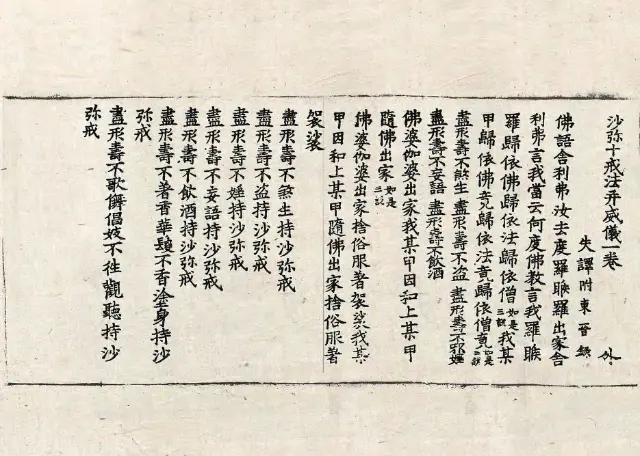 沙弥十戒法并威儀一卷
失譯附東晋録 外
佛語舍利弗汝去度羅睺羅出家舍
利弗言我當云何度佛教言我羅睺
羅歸依佛歸依法歸依僧如是三説我某
甲歸依佛竟歸依法竟歸依僧竟如是三説
盡形壽不煞生 盡形壽不盗 盡形壽不邪婬
盡形壽不妄語 盡形壽不飲酒
佛婆伽婆出家我某甲因和上某甲
隨佛出家如是三説
佛婆伽婆出家捨俗服著袈裟我某
甲因和上某甲隨佛出家捨俗服著
袈裟
盡形壽不煞生持沙弥戒
盡形壽不盗持沙弥戒
盡形壽不婬持沙弥戒
盡形壽不妄語持沙弥戒
盡形壽不飲酒持沙弥戒
盡形壽不著香華鬘不香塗身持沙
弥戒
盡形壽不歌儛倡妓不往觀聽持沙
弥戒